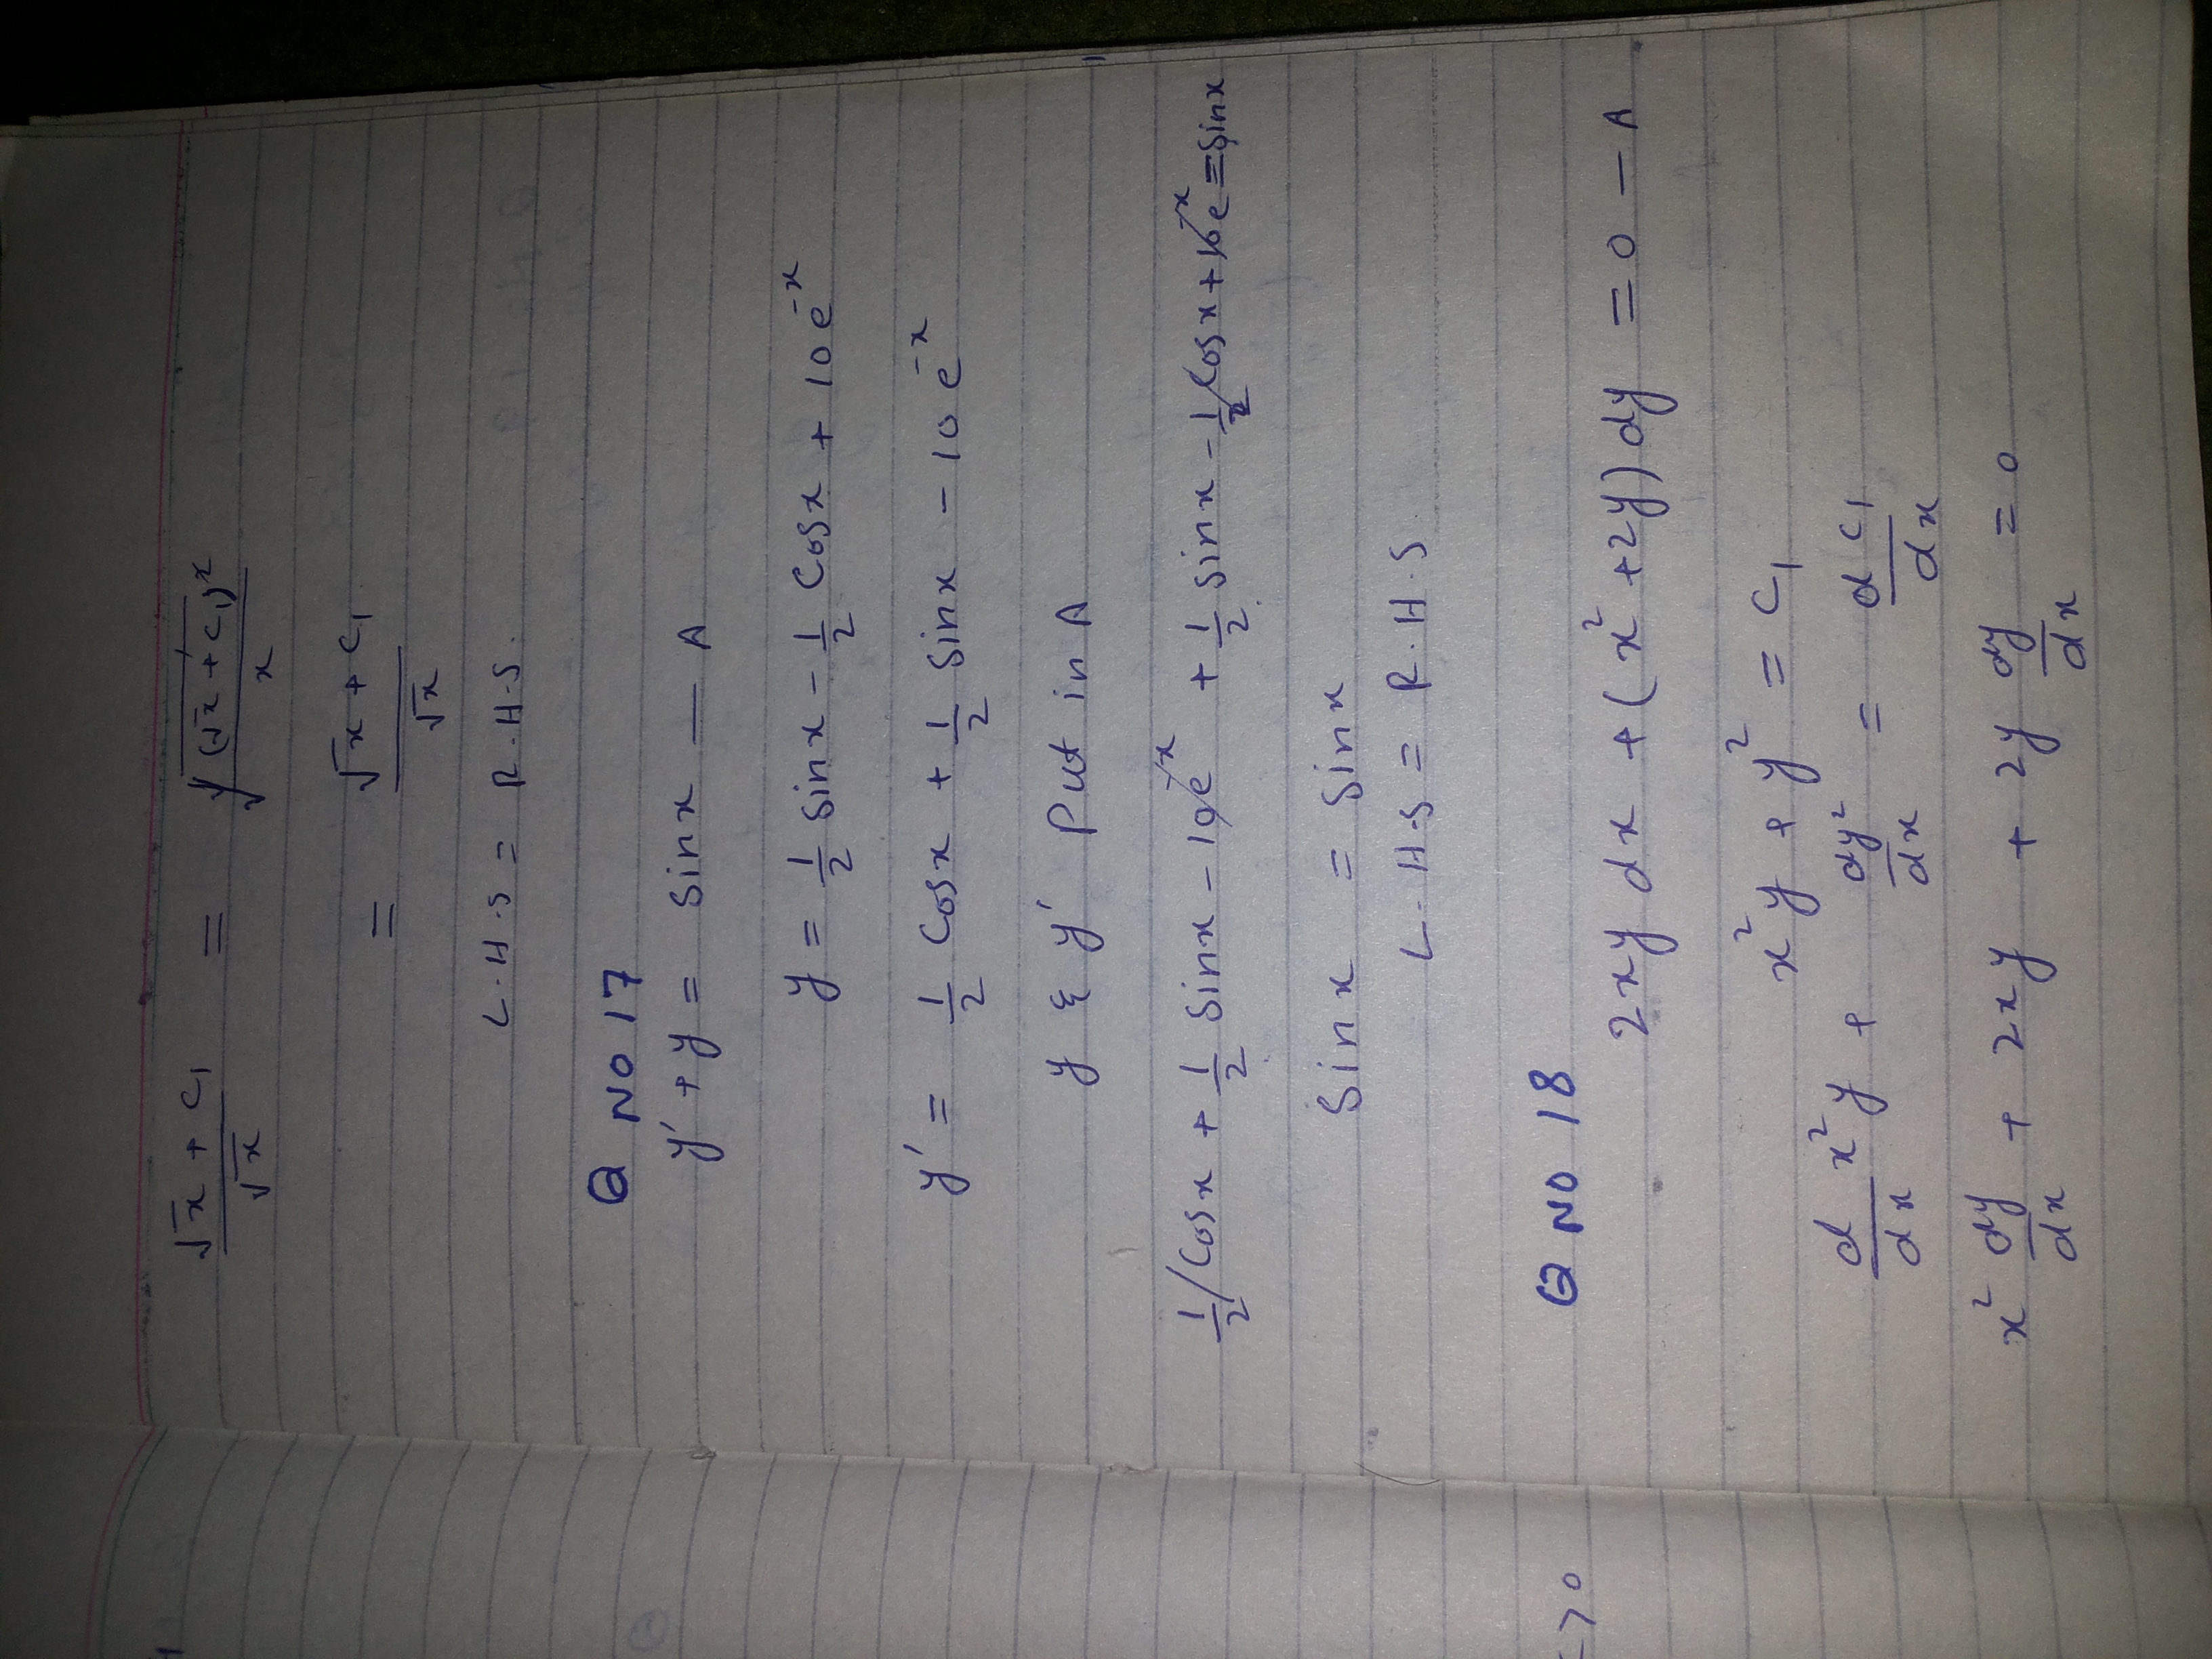 √x + c₁ / √x = √((√x + c₁)² / x)
= √x + c₁ / √x
L.H.S = R.H.S.
Q NO 17
y' + y = sinx — A
y = 1/2 sinx - 1/2 Cosx + 10e^-x
y' = 1/2 Cosx + 1/2 sinx - 10e^-x
y & y' Put in A
1/2 Cosx + 1/2 sinx - 10e^-x + 1/2 sinx - 1/2 Cosx + 10e^-x = sinx
Sinx = sinx
L.H.S = R.H.S.
>0
Q NO 18
2xy dx + (x² + 2y) dy = 0 — A
x²y + y² = C₁
d/dx x²y + dy²/dx = dC₁/dx
x² dy/dx + 2xy + 2y dy/dx = 0